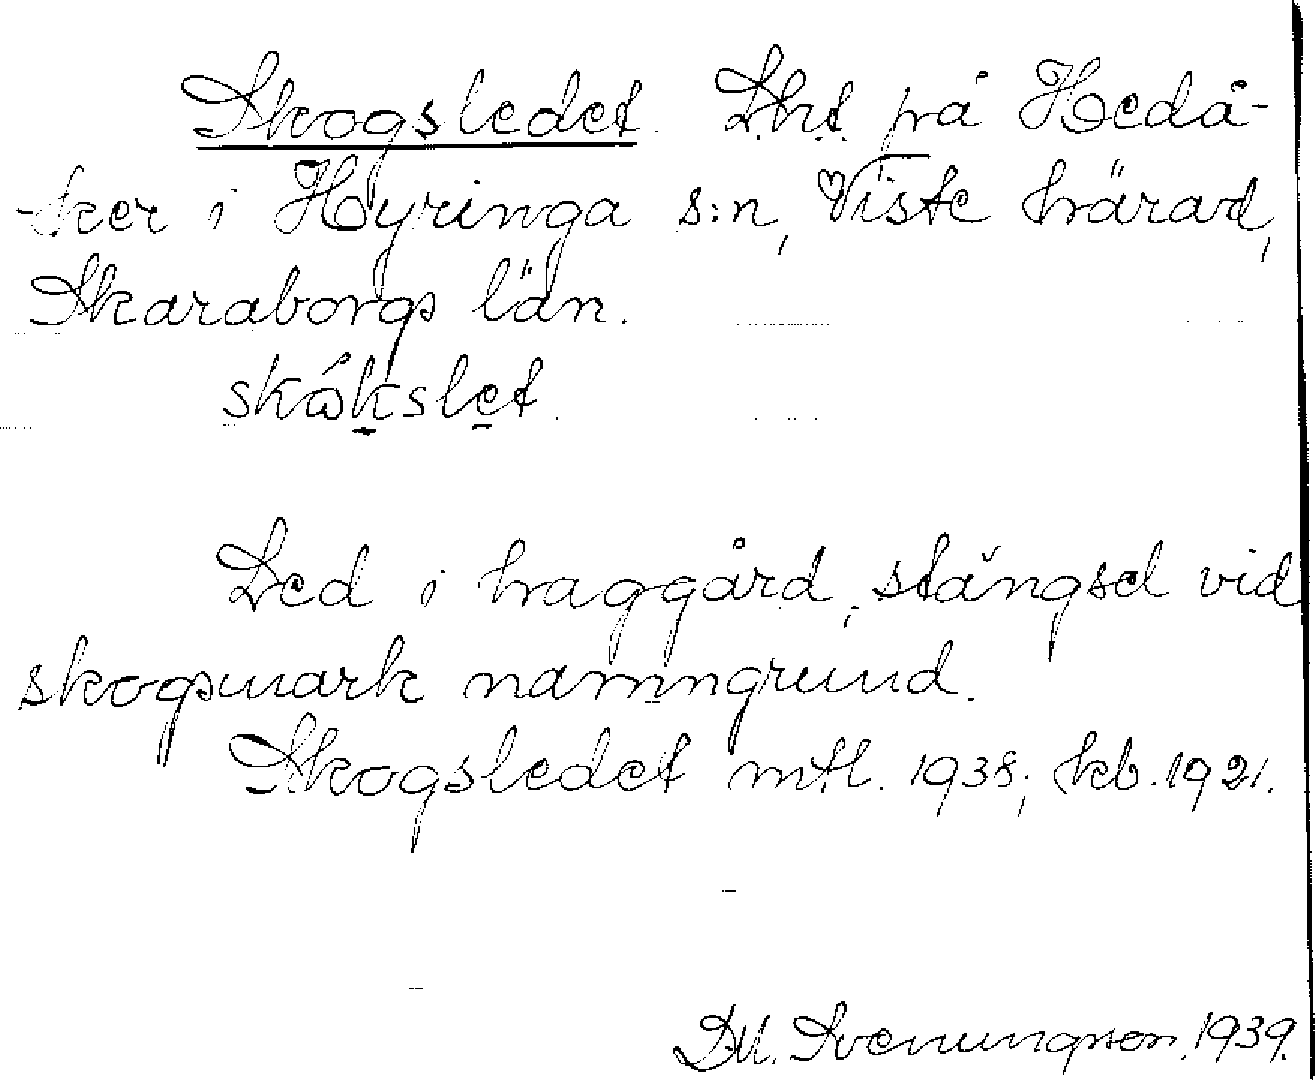 Skogsledet. Lht på Hedå-
-ker i Hyringa s:n, Viste härad,
Skaraborgs län.
skåkslet.
Led i haggård, stängsel vid
skogsmark namngrund.
Skogsledet mtl. 1938; kb. 1921.
Svenungson, 1939.